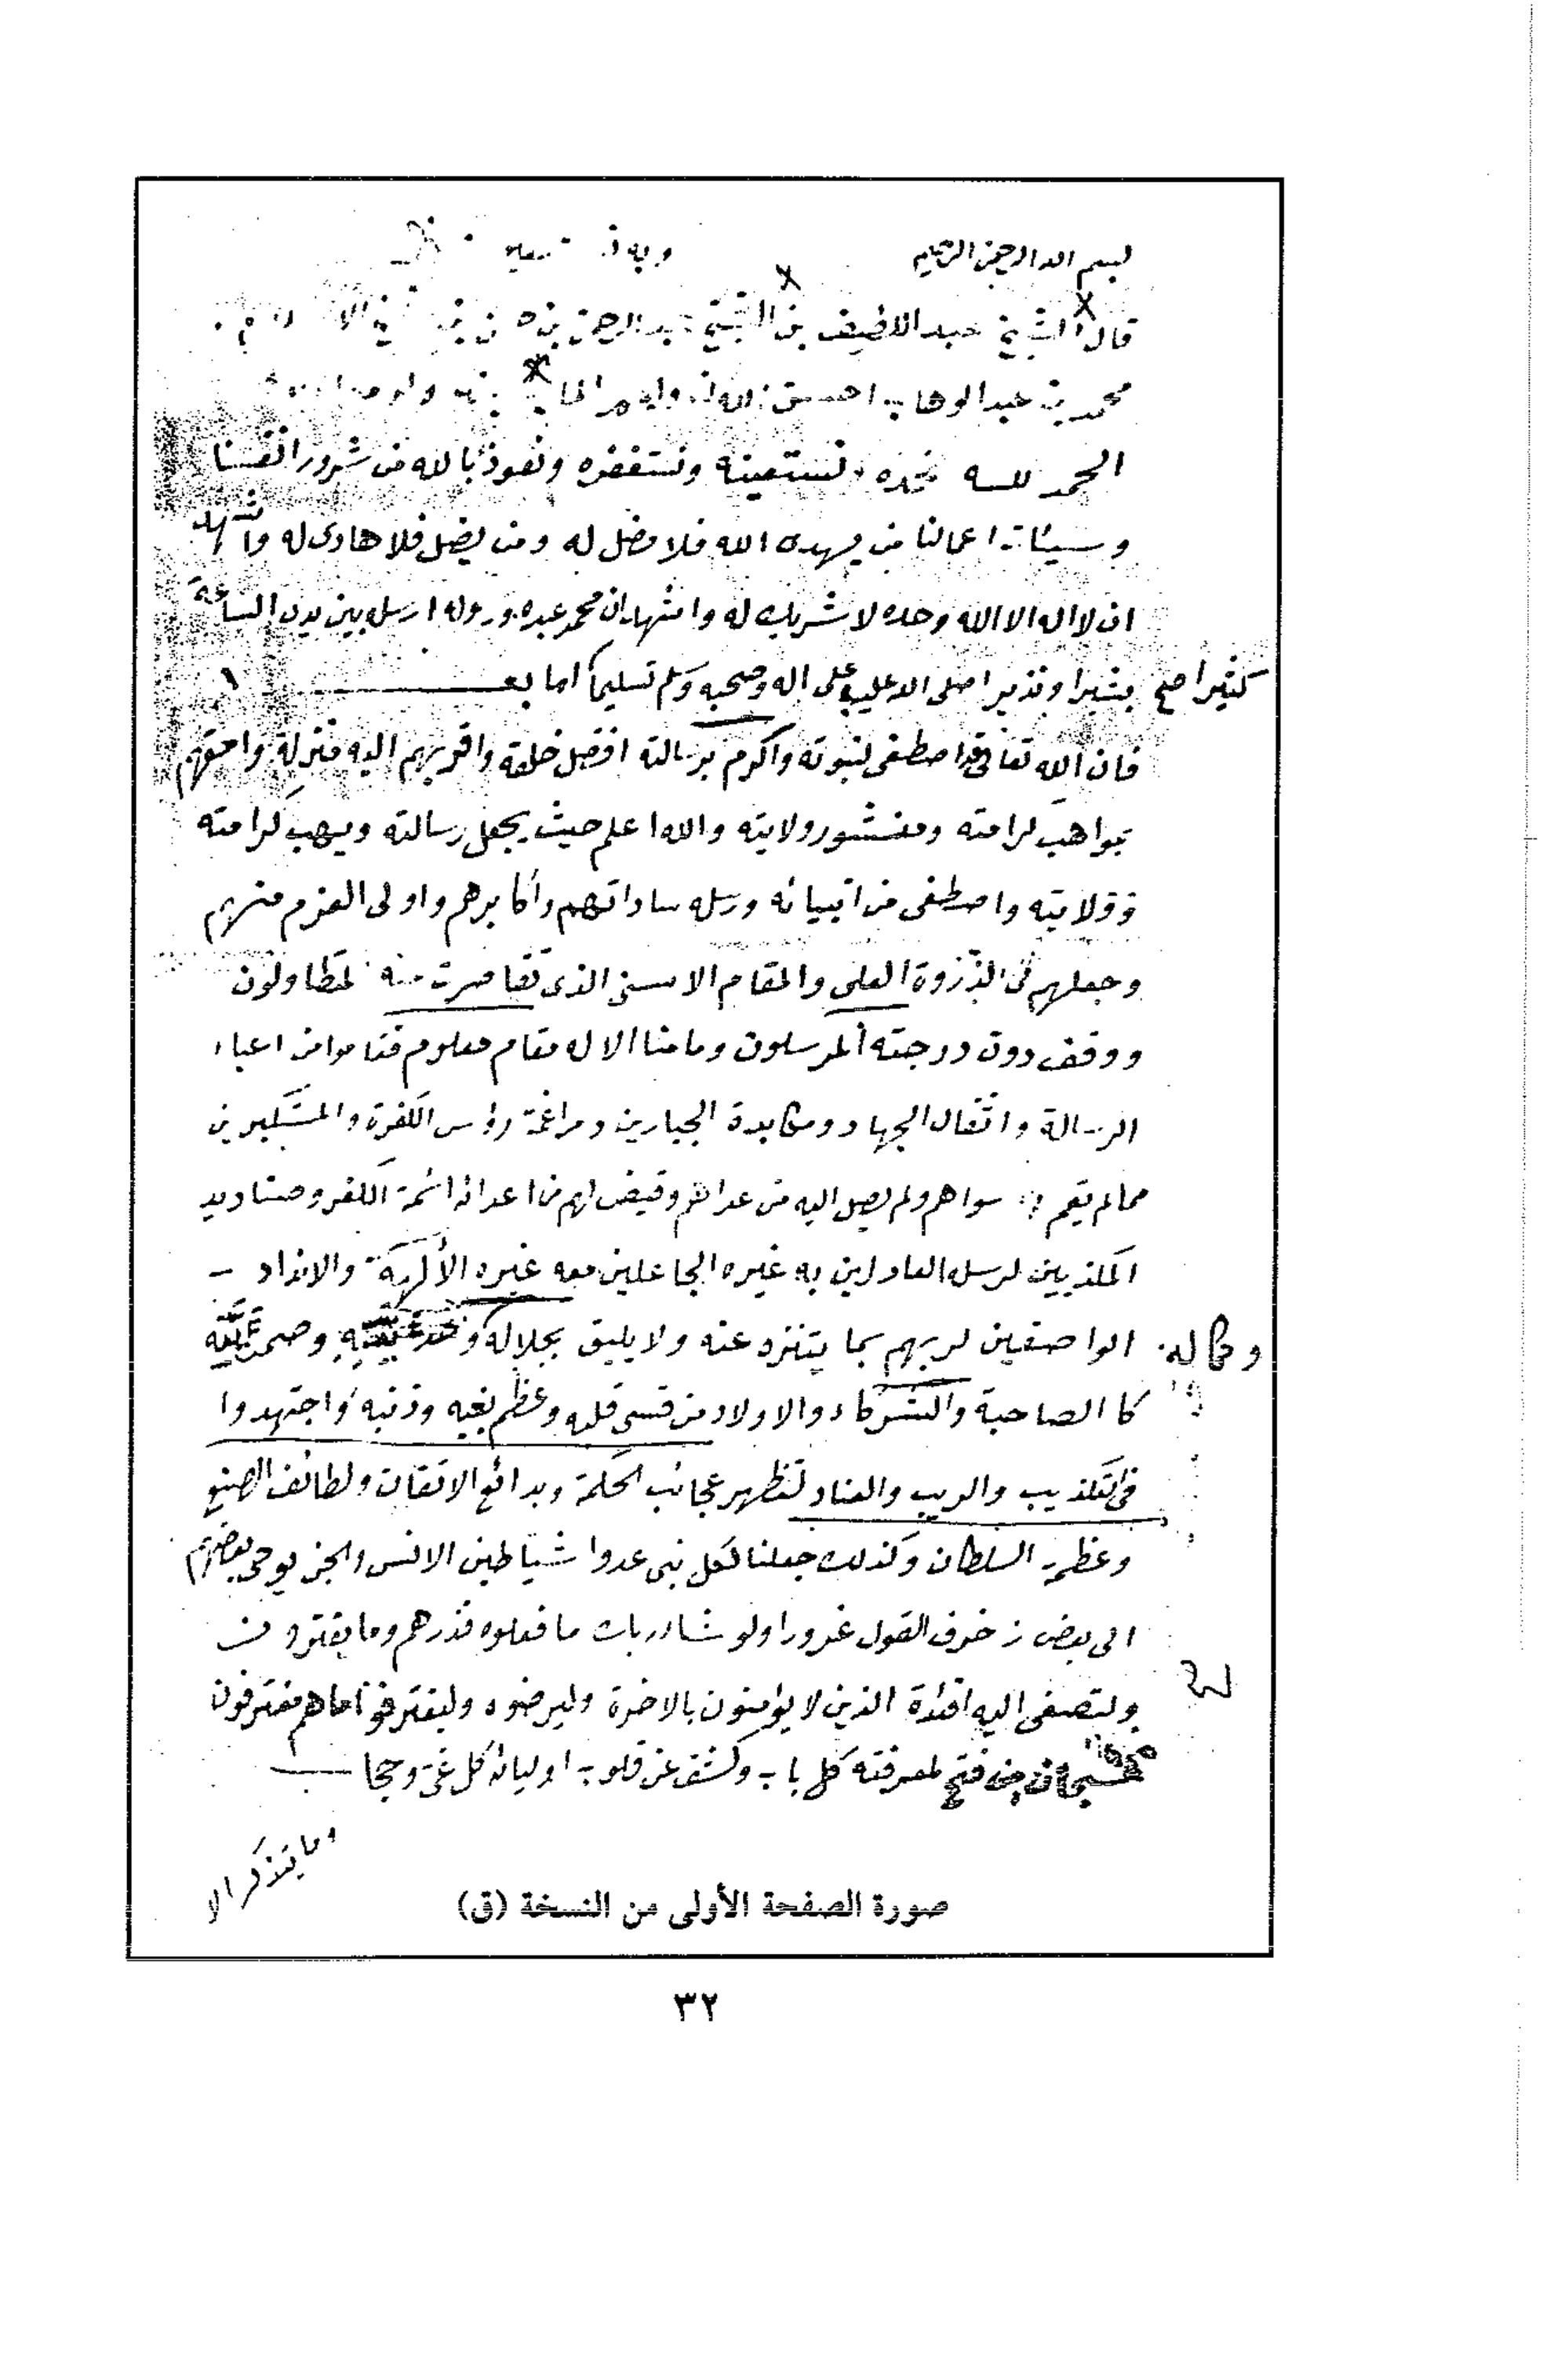 بسم الله الرحمن الرحيم وبه
قال الشيخ عبد اللطيف بن الشيخ عبد الرحمن بن
محمد بن عبد الوهاب احسن الله
الحمد لله نحمده ونستعينه ونستغفره ونعوذ بالله من شرور انفسنا
وسيئات اعمالنا من يهده الله فلا مضل له ومن يضل فلا هادى له واشهد
ان لا اله الا الله وحده لا شريك له واشهد ان محمد عبده ورسوله ارسله بين يدي الساعة
بشيرا ونذيرا صلى الله عليه وعلى اله وصحبه وسلم تسليما اما بعد
كثيرا صح
فان الله تعالى قد اصطفى لنبوته واكرم برسالته افضل خلقه واقربهم اليه منزلة واحقهم
بمواهب كرامته ومنشور ولايته والله اعلم حيث يجعل رسالته ويهب كرامته
وولايته واصطفى من انبيائه ورسله ساداتهم وأكابرهم واولى العزم منهم
وجعلهم في الذروة العلى والمقام الاسنى الذى تقاصرت عنه المتطاولون
ووقف دون درجته المرسلون وما منا الا له مقام معلوم فقاموا من اعباء
الرسالة واثقال الجهاد ومكابدة الجبارين ومراغمة رؤس الكفرة والمتكبرين
مما لم يقم به سواهم ولم يصل اليه من عداهم وقيض لهم من اعدائه ائمة الكفر وصناديد
المكذبين لرسل العادلين به غيره الجاعلين معه غيره الألهة والانداد
الواصفين لربهم بما يتنزه عنه ولا يليق بجلاله
وكماله
كا الصاحبة والشركاء والاولاد من قسى قلبه وعظم بغيه وذنبه واجتهدوا
في التكذيب والريب والعناد لتظهر عجائب الحكمة وبدائع الاتقان ولطائف الصنع
وعظمة السلطان وكذلك جعلنا لكل نبى عدوا شياطين الانس والجن يوحى بعضهم
الى بعض زخرف القول غرورا ولو شاء ربك ما فعلوه فذرهم وما يفترون
ولتصغى اليه افئدة الذين لا يؤمنون بالاخرة وليرضوه وليقترفوا ما هم مقترفون
فسبحان من فتح لمعرفته كل باب وكشف عن قلوب اوليائه كل غي وحجاب
وما يتذكر الا
صورة الصفحة الأولى من النسخة (ق)
٣٢